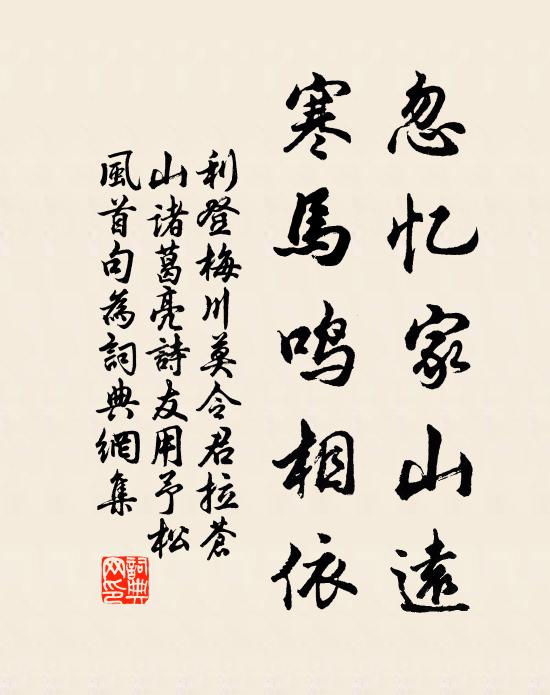 忽忆家山遠
寒馬鸣相依
利登梅川莫令君拉蒼
山诸葛亮詩友用予松
風首句為詞典網集
詞典网印